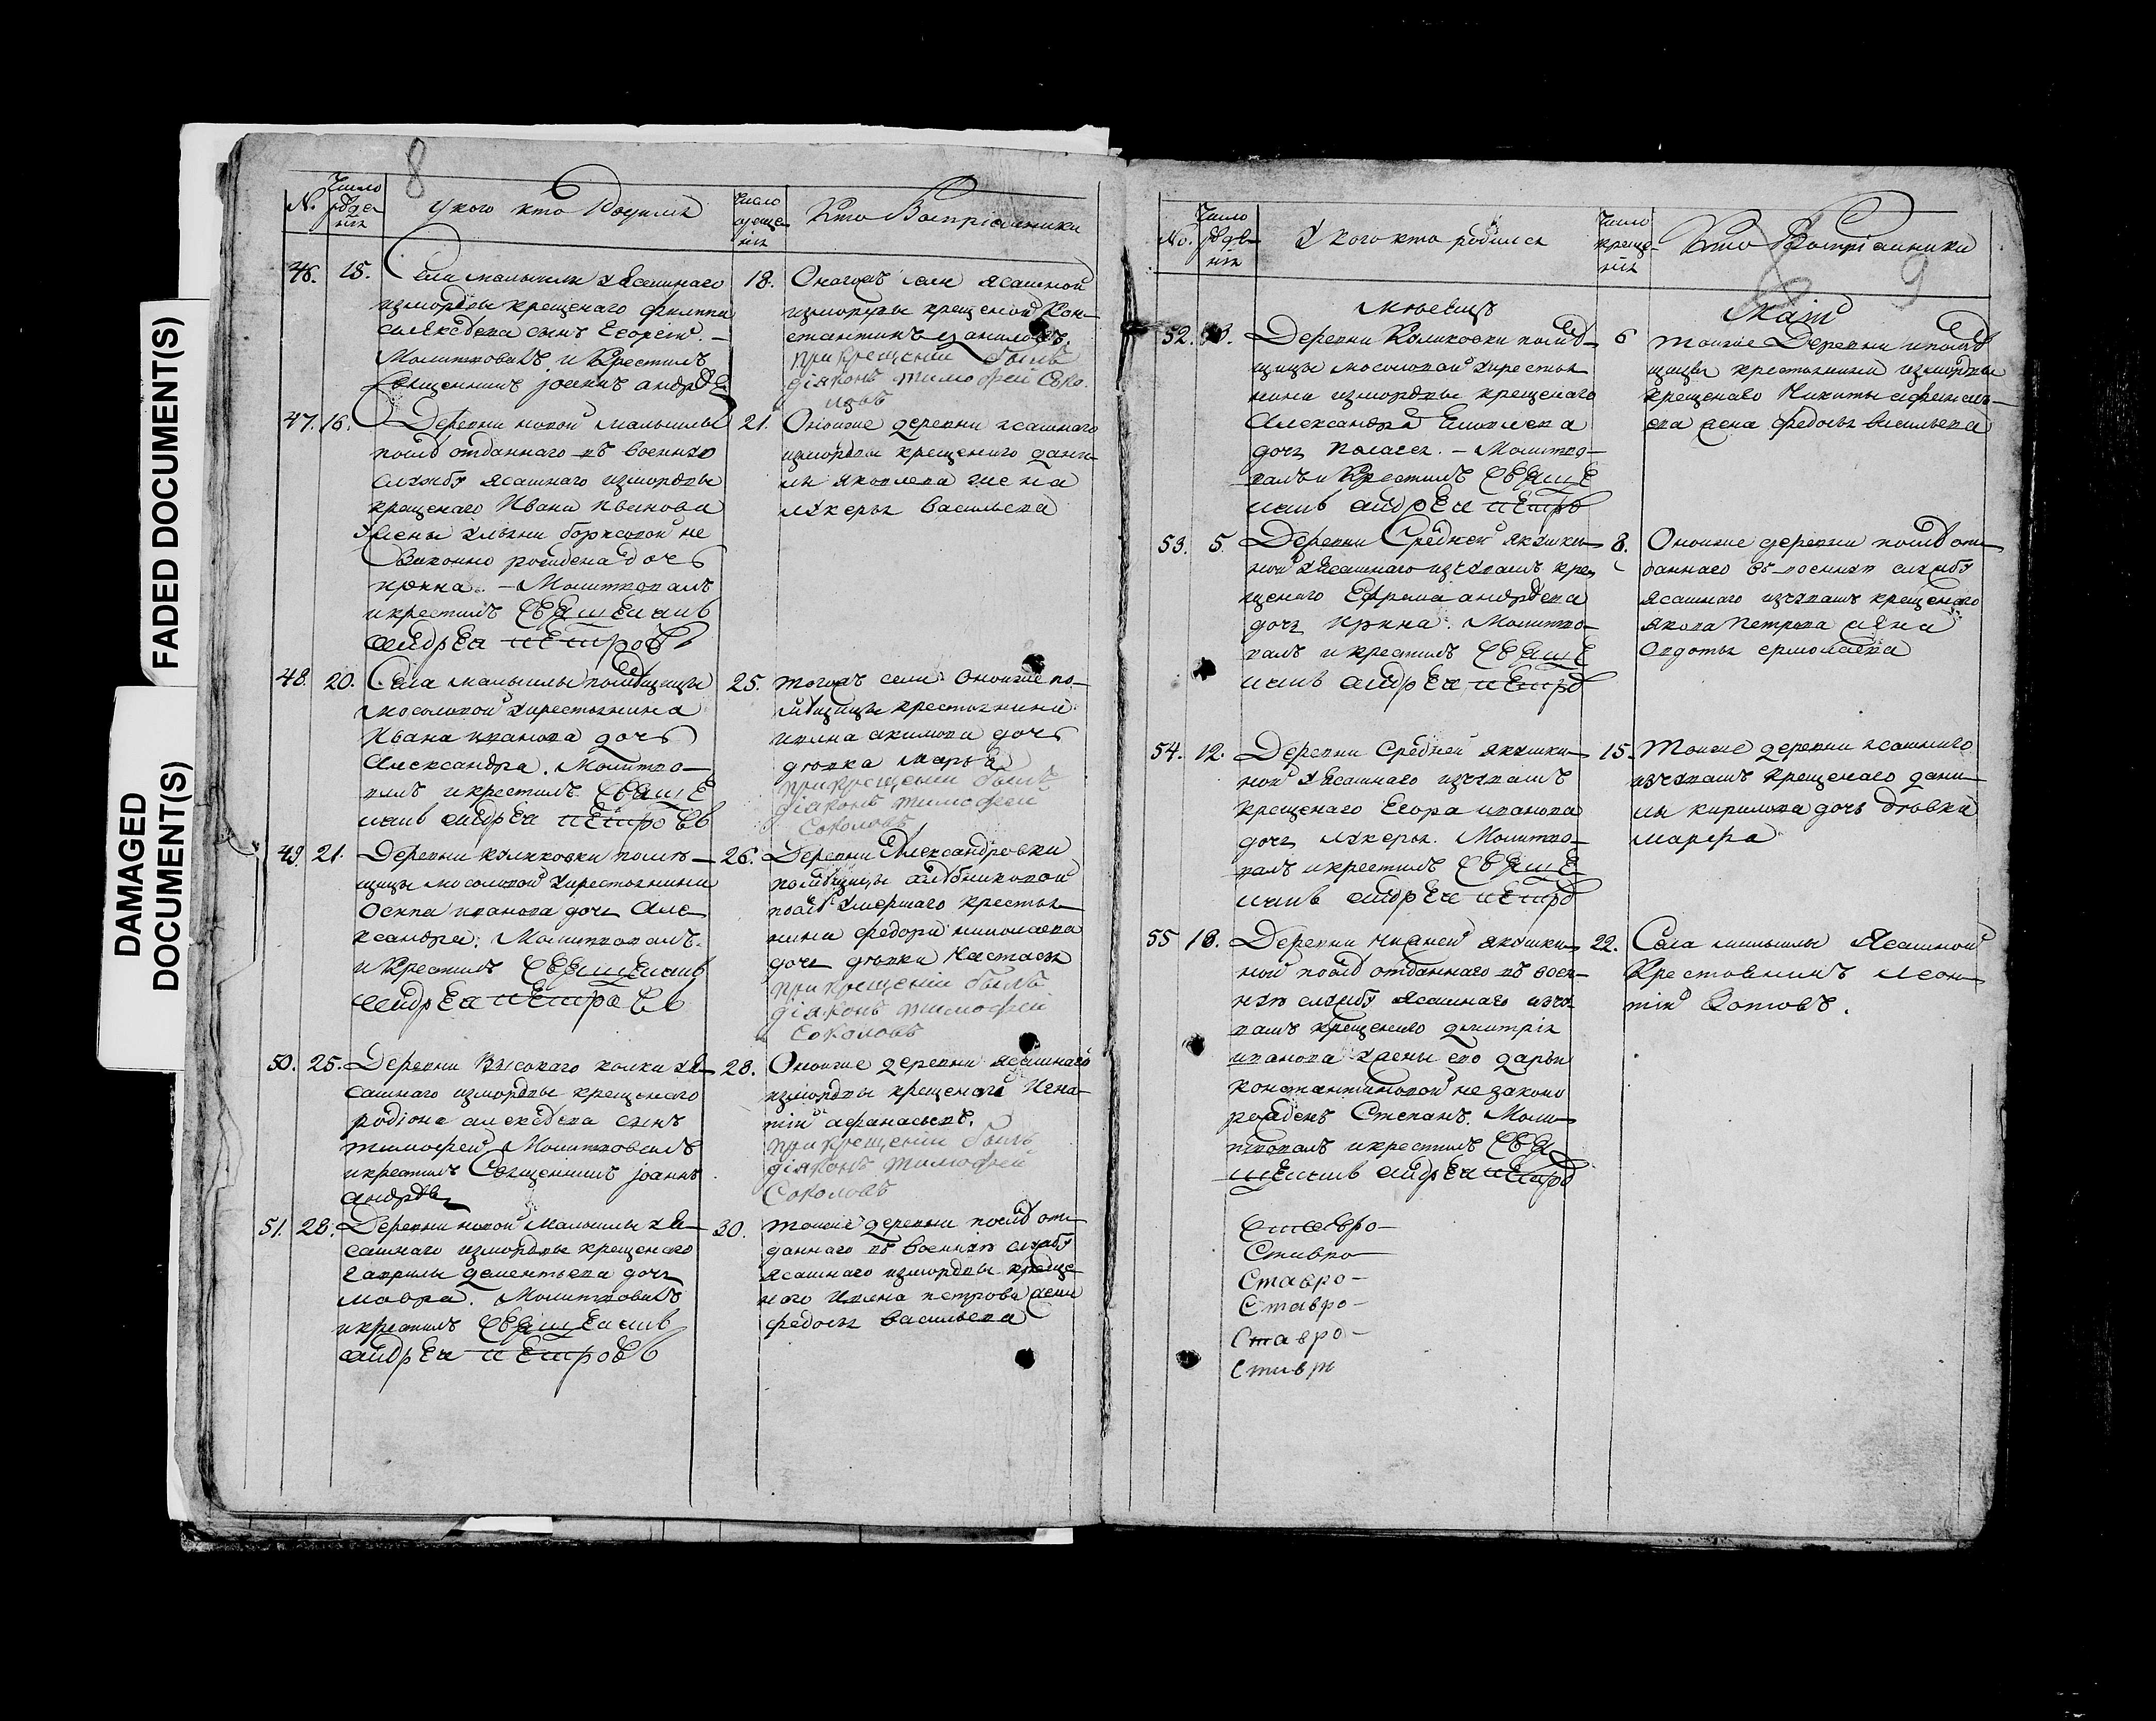 FADED DOCUMENT(S)
DAMAGED
DOCUMENT(S)
8
№. Число рожде нія
У кого кто Родился
Число креще нія
Кто Воспріемники
46. 15. Села малыклы у Ясашнаго
измордвы крещенаго филиппа
алексѣева сынъ Георгій. –
Молитвовалъ и Крестилъ
Священникъ Іоаннъ андрѣевъ
18. Онагожъ села ясашной
измордвы крещеной Кон-
стантинъ даниловъ.
при крещеніи былъ
діяконъ тимофей Соко-
ловъ
47. 16. Деревни новой малыклы
послѣ отданнаго въ военную
службу ясашнаго измордвы
крещенаго Ивана Иванова
жены Ульяны борисовой не
Законно рождена дочь
ирина. – Молитвовалъ
и крестилъ Священникъ
андрей петровъ
21. Оноиже деревни ясашнаго
измордвы крещенаго дани-
лы яковлева жена
лукерья васильева
48. 20. Села малыклы помѣщицы
мосоловой у крестьянина
Ивана иванова дочь
Александра. Молитво-
валъ и крестилъ Свяще
никъ андрей петровъ
25. тогожъ села оноиже по-
мѣщицы крестьянина
ивана акимова дочь
девка марья
при крещеніи былъ
діяконъ тимофей
Соколовъ
49. 21. Деревни куликовки помѣ-
щицы мосоловой у крестьянина
Осипа иванова дочь Але-
ксандра. Молитвовалъ
и Крестилъ Священникъ
андрей петровъ
26. Деревни Александровки
помѣщицы
послѣ умершаго крестья
нина федора николаева
дочь девка Настасья
при крещеніи былъ
діяконъ тимофей
Соколовъ
50. 25. Деревни Высокаго колка у я-
сашнаго измордвы крещенаго
родіона алексѣева сынъ
тимофей. Молитвовалъ
и крестилъ Священникъ Іоаннъ
андрѣевъ
28. Оноиже деревни ясашнаго
измордвы крещенаго Игна-
тій афанасьевъ.
при крещеніи былъ
діяконъ тимофей
Соколовъ
51. 28. Деревни новой Малыклы у я-
сашнаго измордвы крещенаго
гаврилы дементьева дочь
мавра. Молитвовалъ
и крестилъ Священникъ
андрей петровъ
30. тоиже деревни послѣ от-
даннаго въ военную службу
ясашнаго измордвы креще
наго Ивана петрова жена
федосья васильева
9
№. Число рожде нія
У кого кто родился
Число креще- нія
Кто Воспріемники
Маій
52. 3. Деревни Куликовки помѣ-
щицы мосоловой у крестья
нина измордвы крещенаго
Александра
дочь Пелагея. – Молитво-
валъ и Крестилъ Свяще
никъ андрей петровъ
6 тоиже Деревни и помѣ
щицы крестьянина измордвы
крещенаго Никиты афанась-
ева жена федосья васильева
53. 5. Деревни Средней якушки-
ной у ясашнаго изчувашъ кре
щенаго Ефрема андрѣева
дочь ирина. Молитво-
валъ и крестилъ Свяще
никъ андрей петровъ
8. Оноиже деревни послѣ от-
даннаго въ военную службу
ясашнаго изчувашъ крещенаго
якова Петрова жена
Авдотья ермолаева
54. 12. Деревни Средней якушки-
ной у ясашнаго изчувашъ
крещенаго Егора иванова
дочь лукерья. Молитво-
валъ и крестилъ Свяще
никъ андрей петровъ
15. Тоиже деревни ясашнаго
изчувашъ крещенаго дани-
лы кирилова дочь девка
марфа
55 18. Деревни нижней якушки-
ной послѣ отданнаго въ воен-
ную службу ясашнаго изчу-
вашъ крещенаго димитрія
иванова у жены его дарьи
константиновой не законо
рожденъ Степанъ. Моли-
твовалъ и крестилъ Свя
щенникъ андрей петровъ
22. Села малыклы Ясашной
Крестьянинъ леон-
тій Зотовъ.
Ставро-
Ставро-
Ставро-
Ставро-
Ставро-